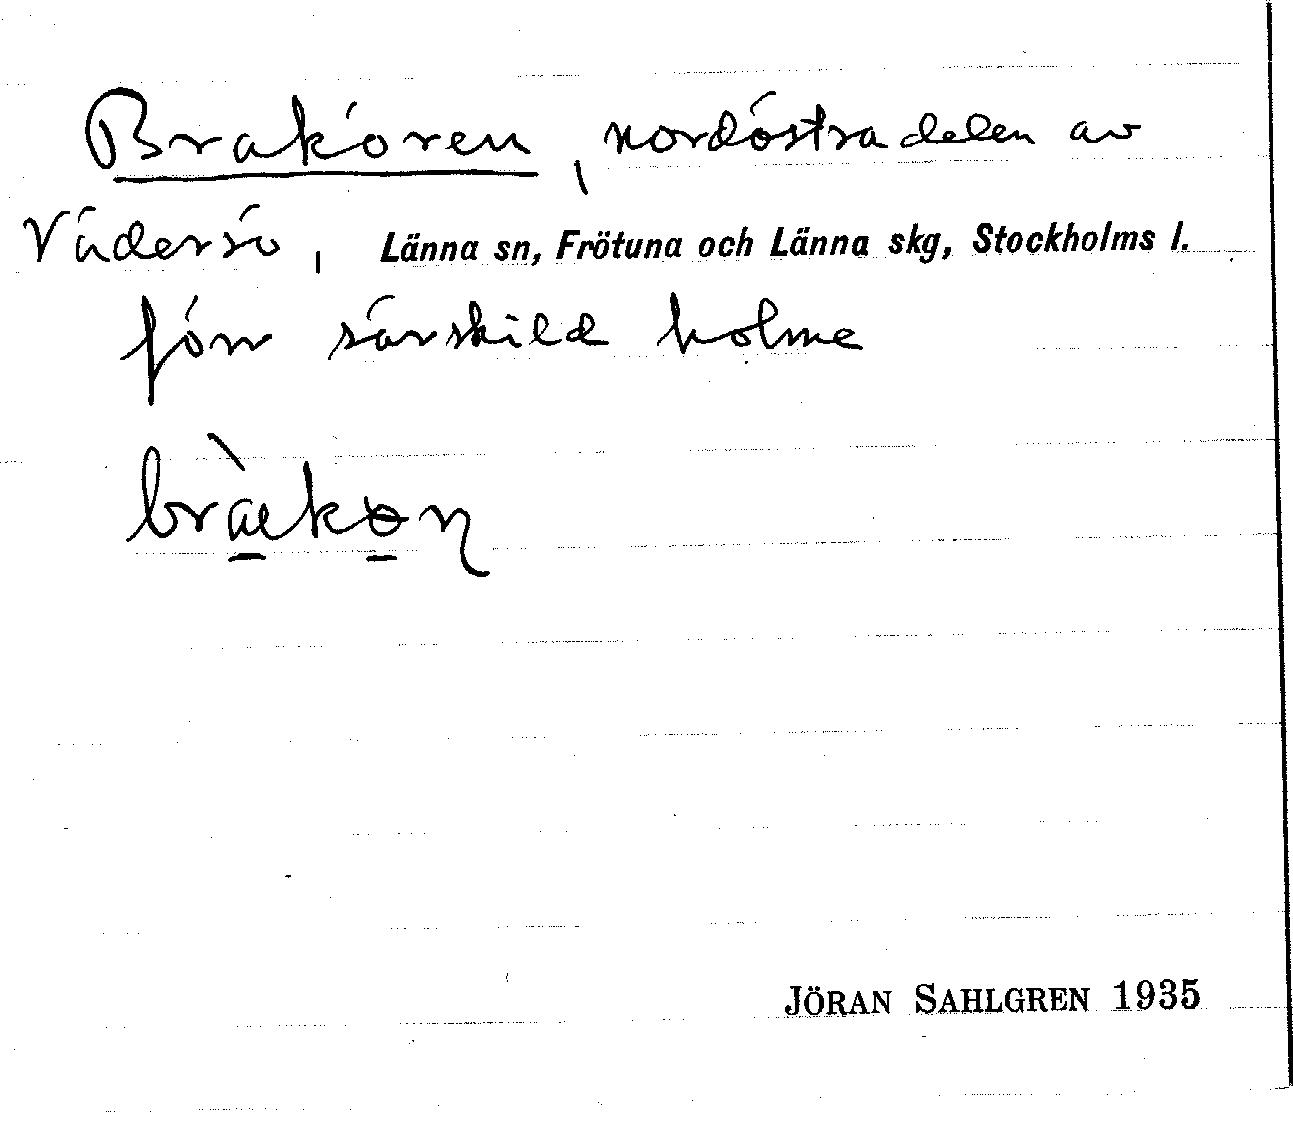 Brakören, nordöstra delen av
Väderö, Länna sn, Frötuna och Länna skg, Stockholms l.
förr särskild holme
JÖRAN SAHLGREN 1935